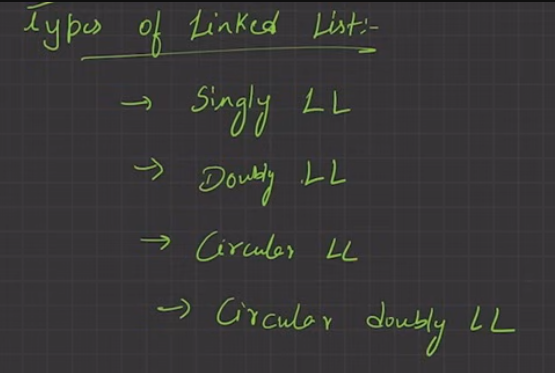 Types of Linked List:-
→ Singly LL
→ Doubly LL
→ Circular LL
→ Circular doubly LL